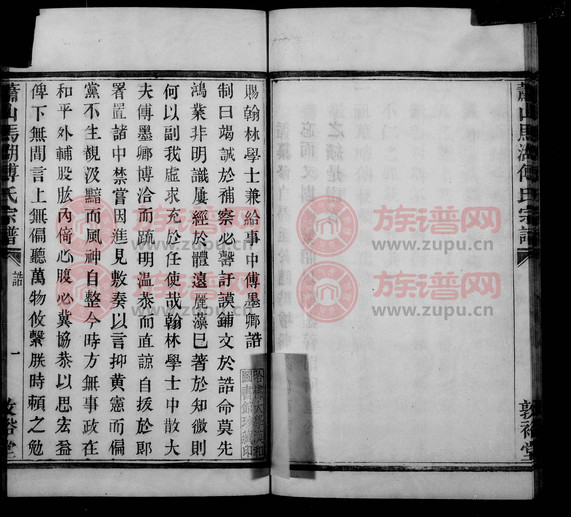 賜翰林學士兼給事中傅墨卿誥
制曰竭誠於補察必罄訏謨鋪文於誥命莫先
鴻業非明識屢經於體遠麗藻已著於知微則
何以副我虛求充於任使哉翰林學士中散大
夫傅墨卿博洽而疏明溫恭而直諒自拔於郎
署置諸中禁嘗因進見敷奏以言抑黃憲而偏
黨不生覩汲黯而風神自整今時方無事政在
和平外輔股肱內倚心腹必冀協恭以思宏益
俾下無間言上無偏聽萬物攸繫朕時賴之勉
蕭山馬湖傅氏宗譜
誥
一
敦裕堂
蕭山馬湖傅氏宗譜
敦裕堂
族谱网
www.zupu.cn
族谱网
www.zupu.cn
族谱网
www.zupu.cn
族谱网
www.zupu.cn